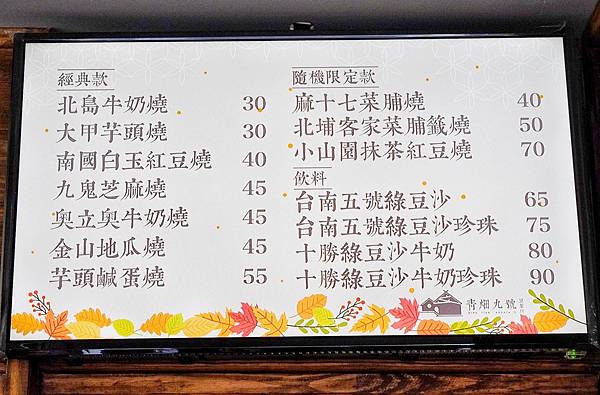 經典款
北島牛奶燒 30
大甲芋頭燒 30
南國白玉紅豆燒 40
九鬼芝麻燒 45
奧立奧牛奶燒 45
金山地瓜燒 45
芋頭鹹蛋燒 55
隨機限定款
麻十七菜脯燒 40
北埔客家菜脯籤燒 50
小山園抹茶紅豆燒 70
飲料
台南五號綠豆沙 65
台南五號綠豆沙珍珠 75
十勝綠豆沙牛奶 80
十勝綠豆沙牛奶珍珠 90
青畑九號